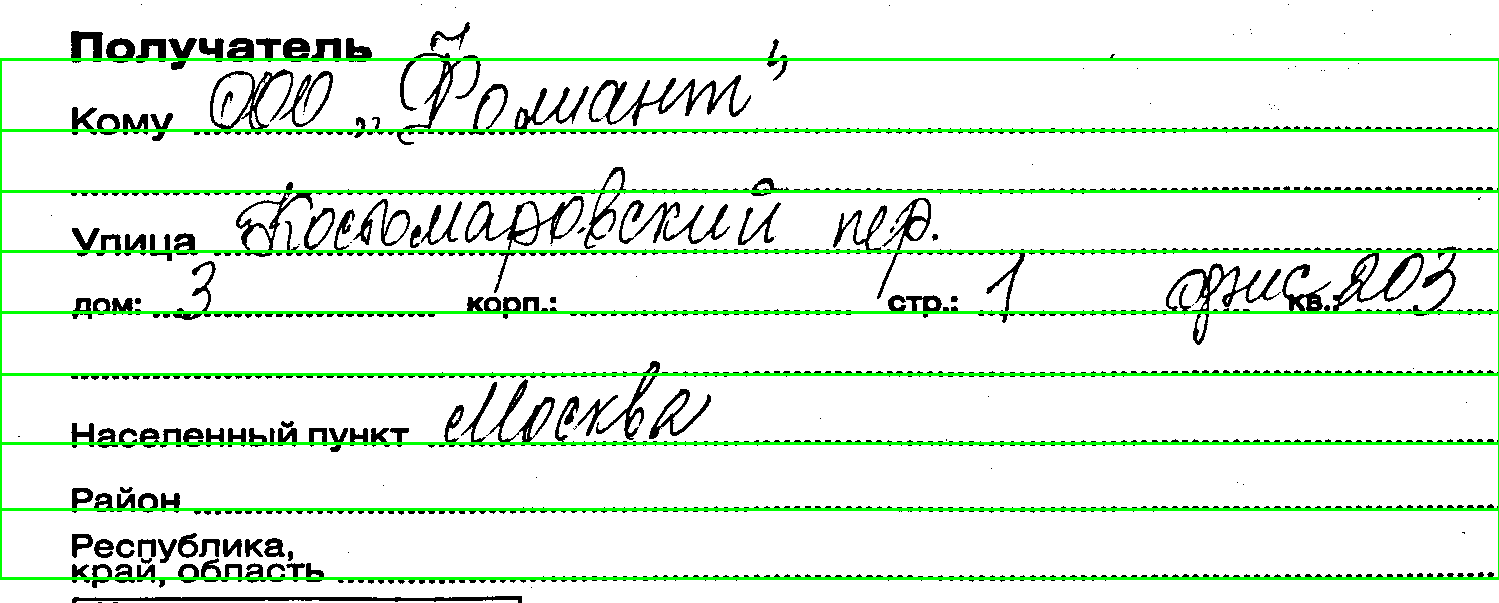 Получатель
Кому ООО „Фолиант”
Улица Костомаровский пер.
дом: 3 корп.: стр.: 1 офис кв.: 203
Населенный пункт Москва
Район
Республика,
край, область